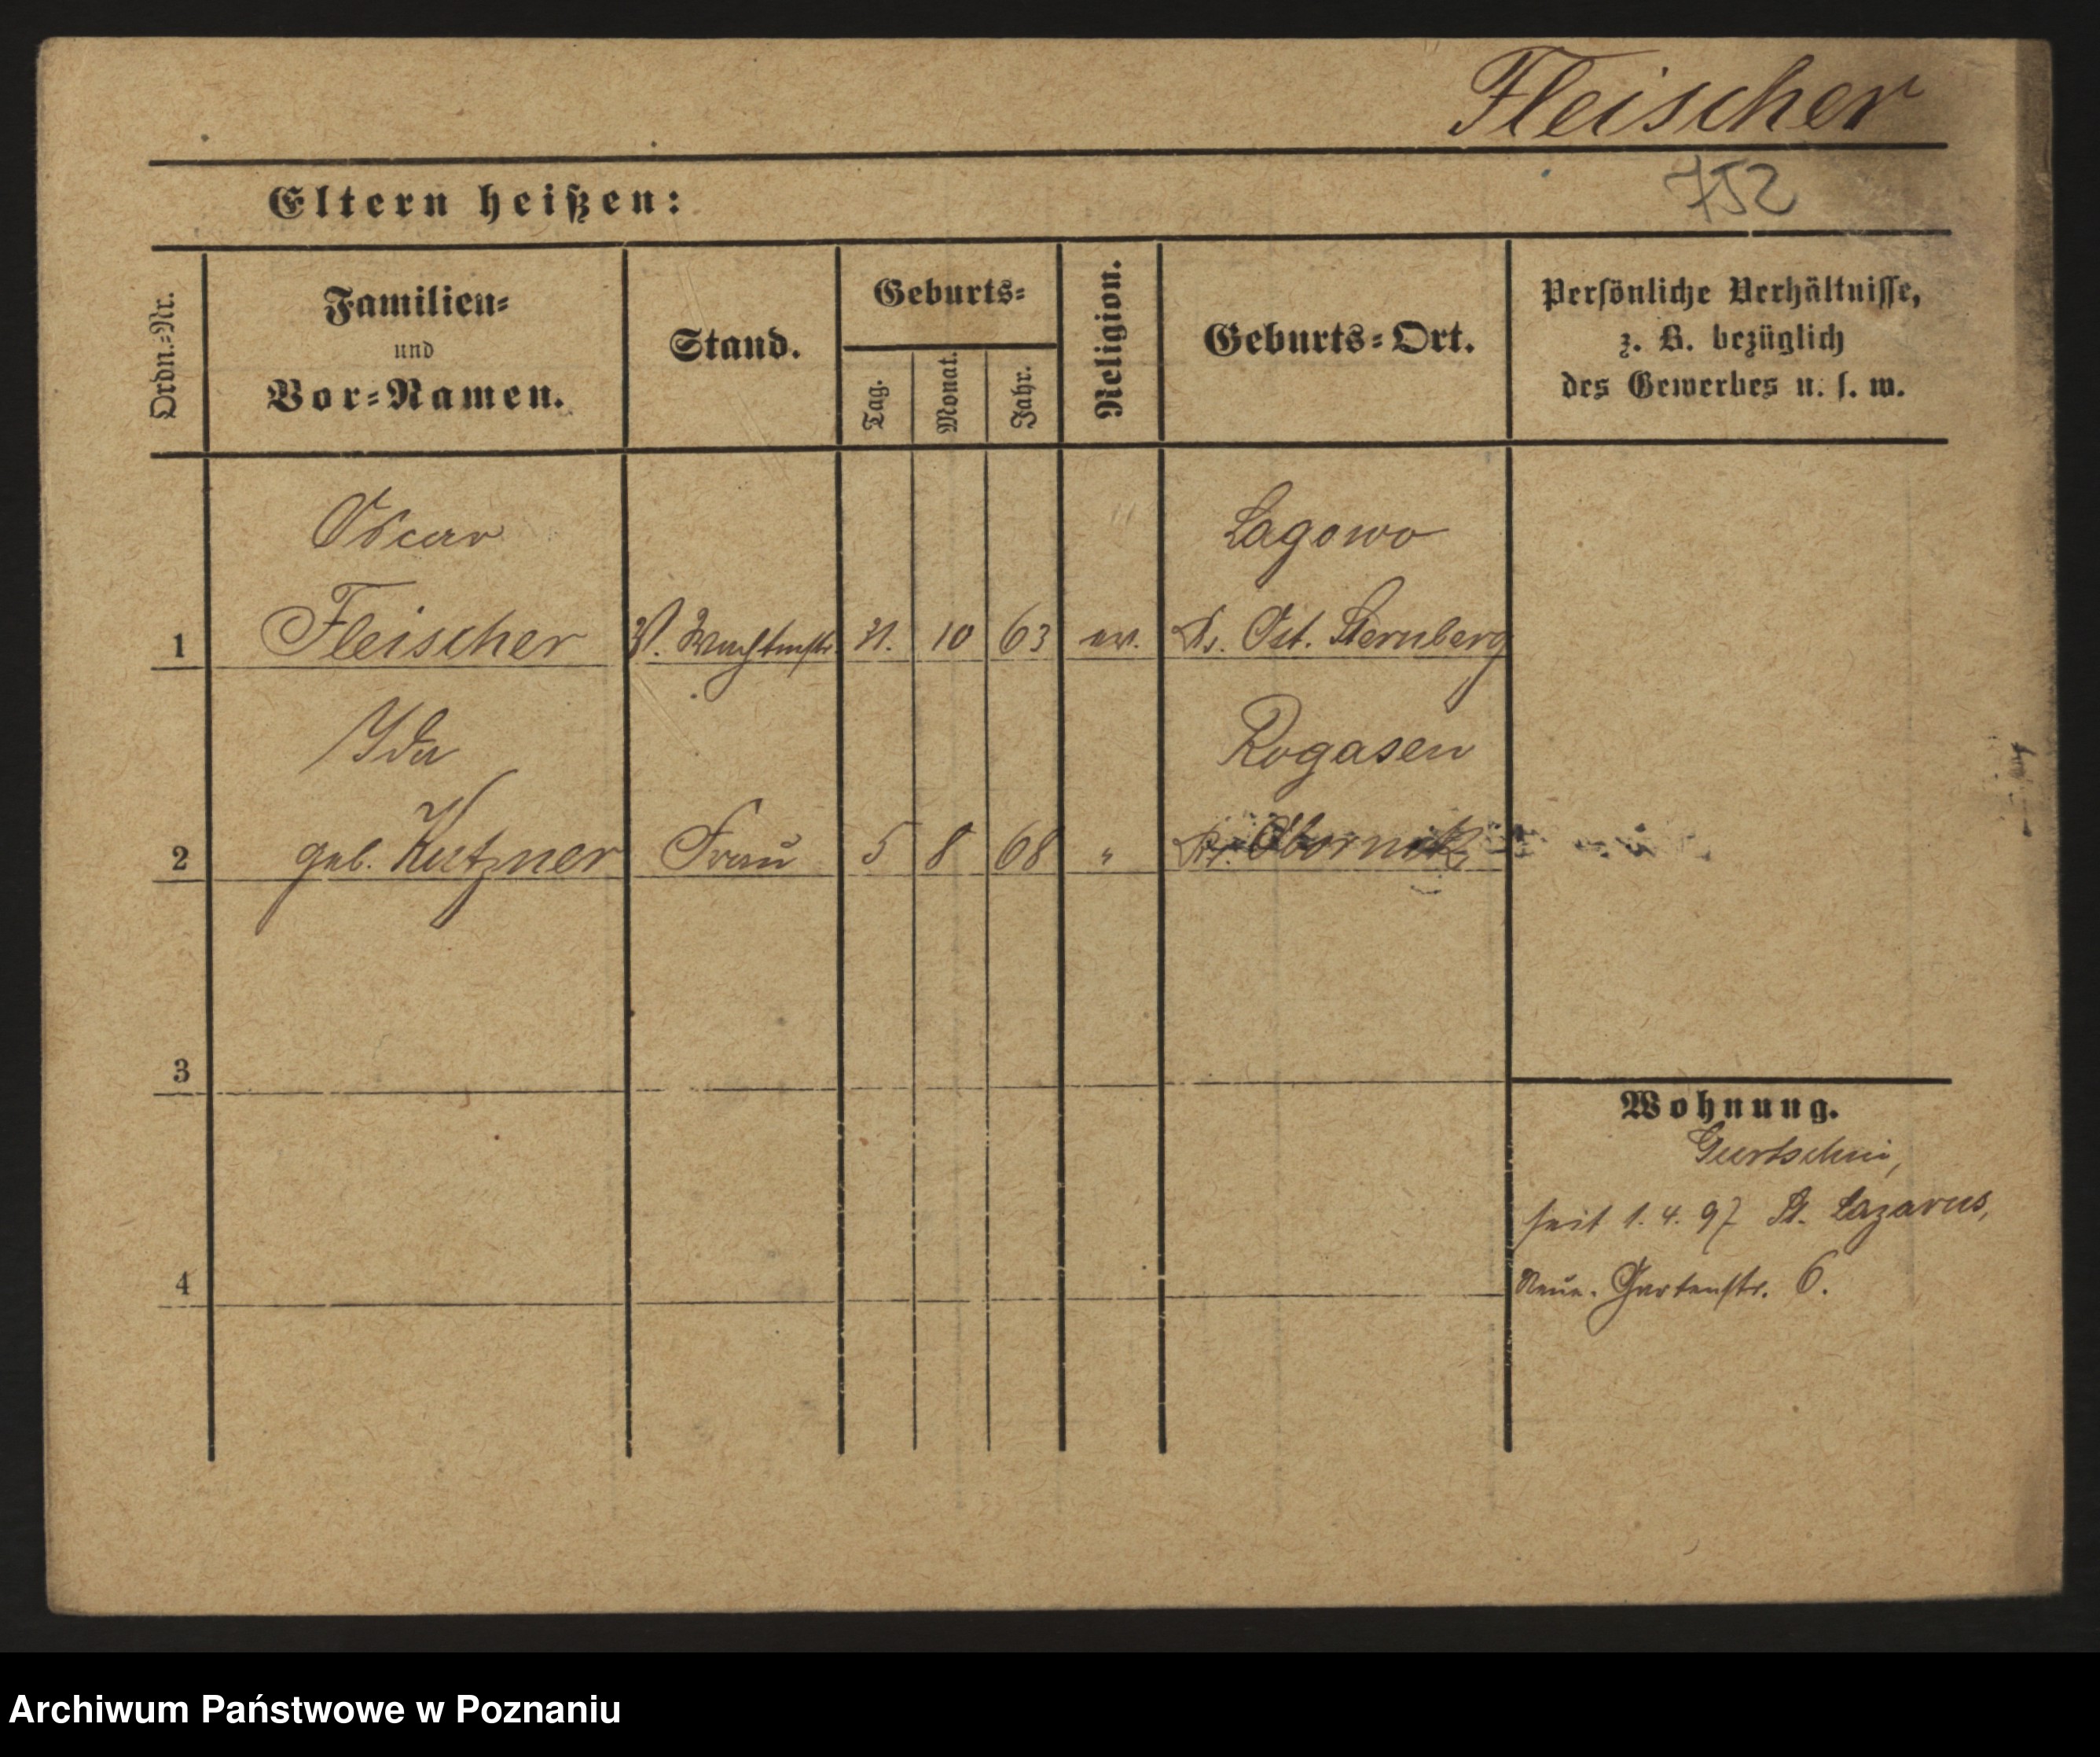 Fleischer
752
Eltern heißen:
Ordn.-Nr.
Familien-
und
Vor-Namen.
Stand.
Geburts-
Tag.
Monat.
Jahr.
Religion.
Geburts-Ort.
Persönliche Verhältnisse,
z. B. bezüglich
des Gewerbes u. s. w.
Oscar
Lagowo
1 Fleischer 10 63 ev. Kr. Ost. Sternberg
Ida
Rogasen
2 geb. Kutzner Frau 5 8 68 " Kr. Obornik
3
Wohnung.
Gurtschin,
seit 1. 4. 97 St. Lazarus,
4
Neue. Gartenstr. 6.
Archiwum Państwowe w Poznaniu